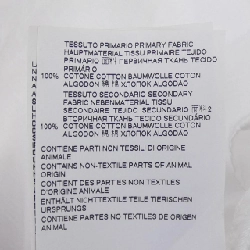 TESSUTO PRIMARIO PRIMARY FABRIC
HAUPTMATERIAL TISSU PRIMAIRE TEJIDO
PRIMARIO 面料 ПЕРВИЧНАЯ ТКАНЬ TECIDO
PRIMÁRIO
100% COTONE COTTON BAUMWOLLE COTON
ALGODON 棉 棉 ХЛОПОК ALGODÃO
TESSUTO SECONDARIO SECONDARY
FABRIC NEBENMATERIAL TISSU
SECONDAIRE TEJIDO SECUNDARIO 面料2
ВТОРИЧНАЯ ТКАНЬ TECIDO SECUNDÁRIO
100% COTONE COTTON BAUMWOLLE COTON
ALGODON 棉 棉 ХЛОПОК ALGODÃO
CONTIENE PARTI NON TESSILI DI ORIGINE
ANIMALE
CONTAINS NON-TEXTILE PARTS OF ANIMAL
ORIGIN
CONTIENT DES PARTIES NON TEXTILES
D'ORIGINE ANIMALE
ENTHÄLT NICHTTEXTILE TEILE TIERISCHEN
URSPRUNGS
CONTIENE PARTES NO TEXTILES DE ORIGEN
ANIMAL